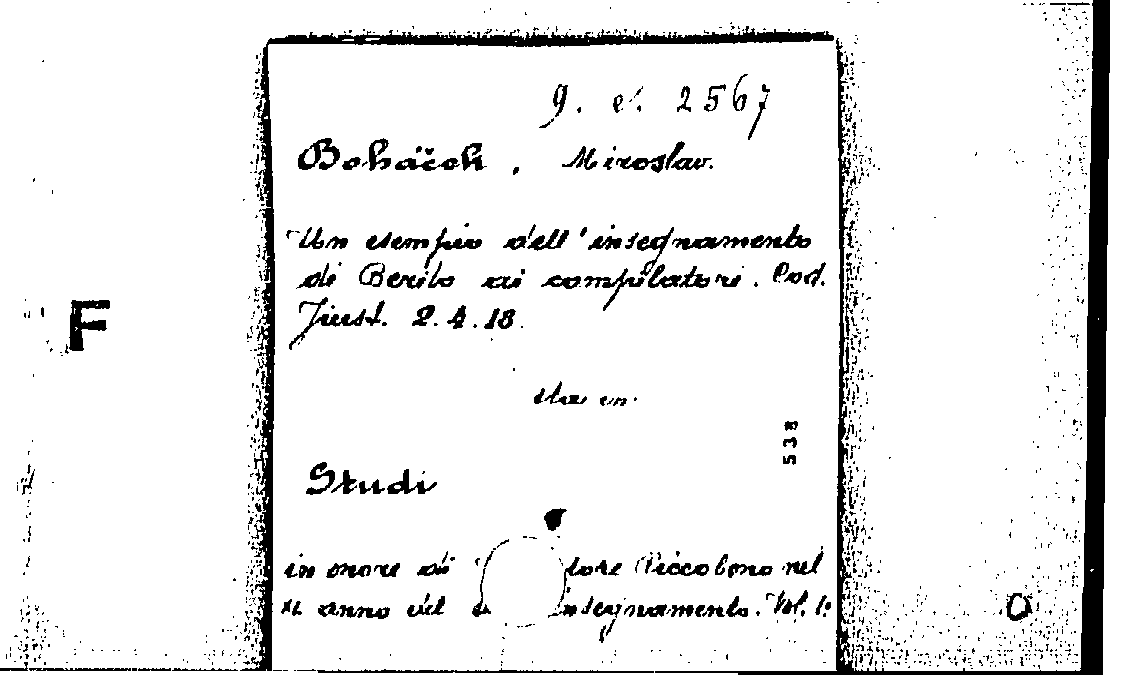 g. e. 2567
Boháček, Miroslav.
Un esempio dell'insegnamento
di Berito ai compilatori. Cod.
Just. 2.4.18.
sta in
538
Studi
in onore di tore Riccobono nel
XL anno del insegnamento. Vol. 1.
F
O